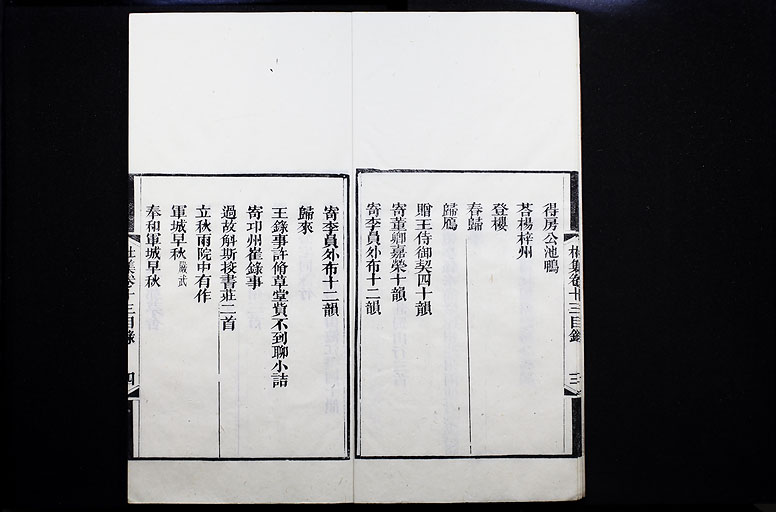 得房公池鵝
荅楊梓州
登樓
春歸
歸鴈
贈王侍御契四十韻
寄董卿嘉榮十韻
寄李員外布十二韻
杜集卷十三目錄
三
寄李員外布十二韻
歸來
王錄事許脩草堂貲不到聊小詰
寄邛州崔錄事
過故斛斯挍書莊二首
立秋雨院中有作
軍城早秋 嚴武
奉和軍城早秋
杜集卷十三目錄
四